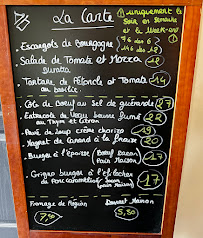 La Carte
! uniquement le
soir en semaine
et le week-end
Escargots de Bourgogne
9€ les 6
16€ les 12
Salade de Tomate et Mozza
Burrata
12
Tartare de Pétoncle et Tomate
au basilic
14
Côte de Boeuf au sel de guérande 27
Entrecote de Veau Sauce fumé 22
au Thym et Citron
Pavé de loup crème chorizo 19
Magret de Canard à la fraise 20
Burger à l'époisse (Boeuf Bacon
Pain Maison) 17
Grigny burger à l'effiloché
de Porc caramélisé
(pain Maison) 17
Fromage de Région
7,90
Dessert Maison
5,80